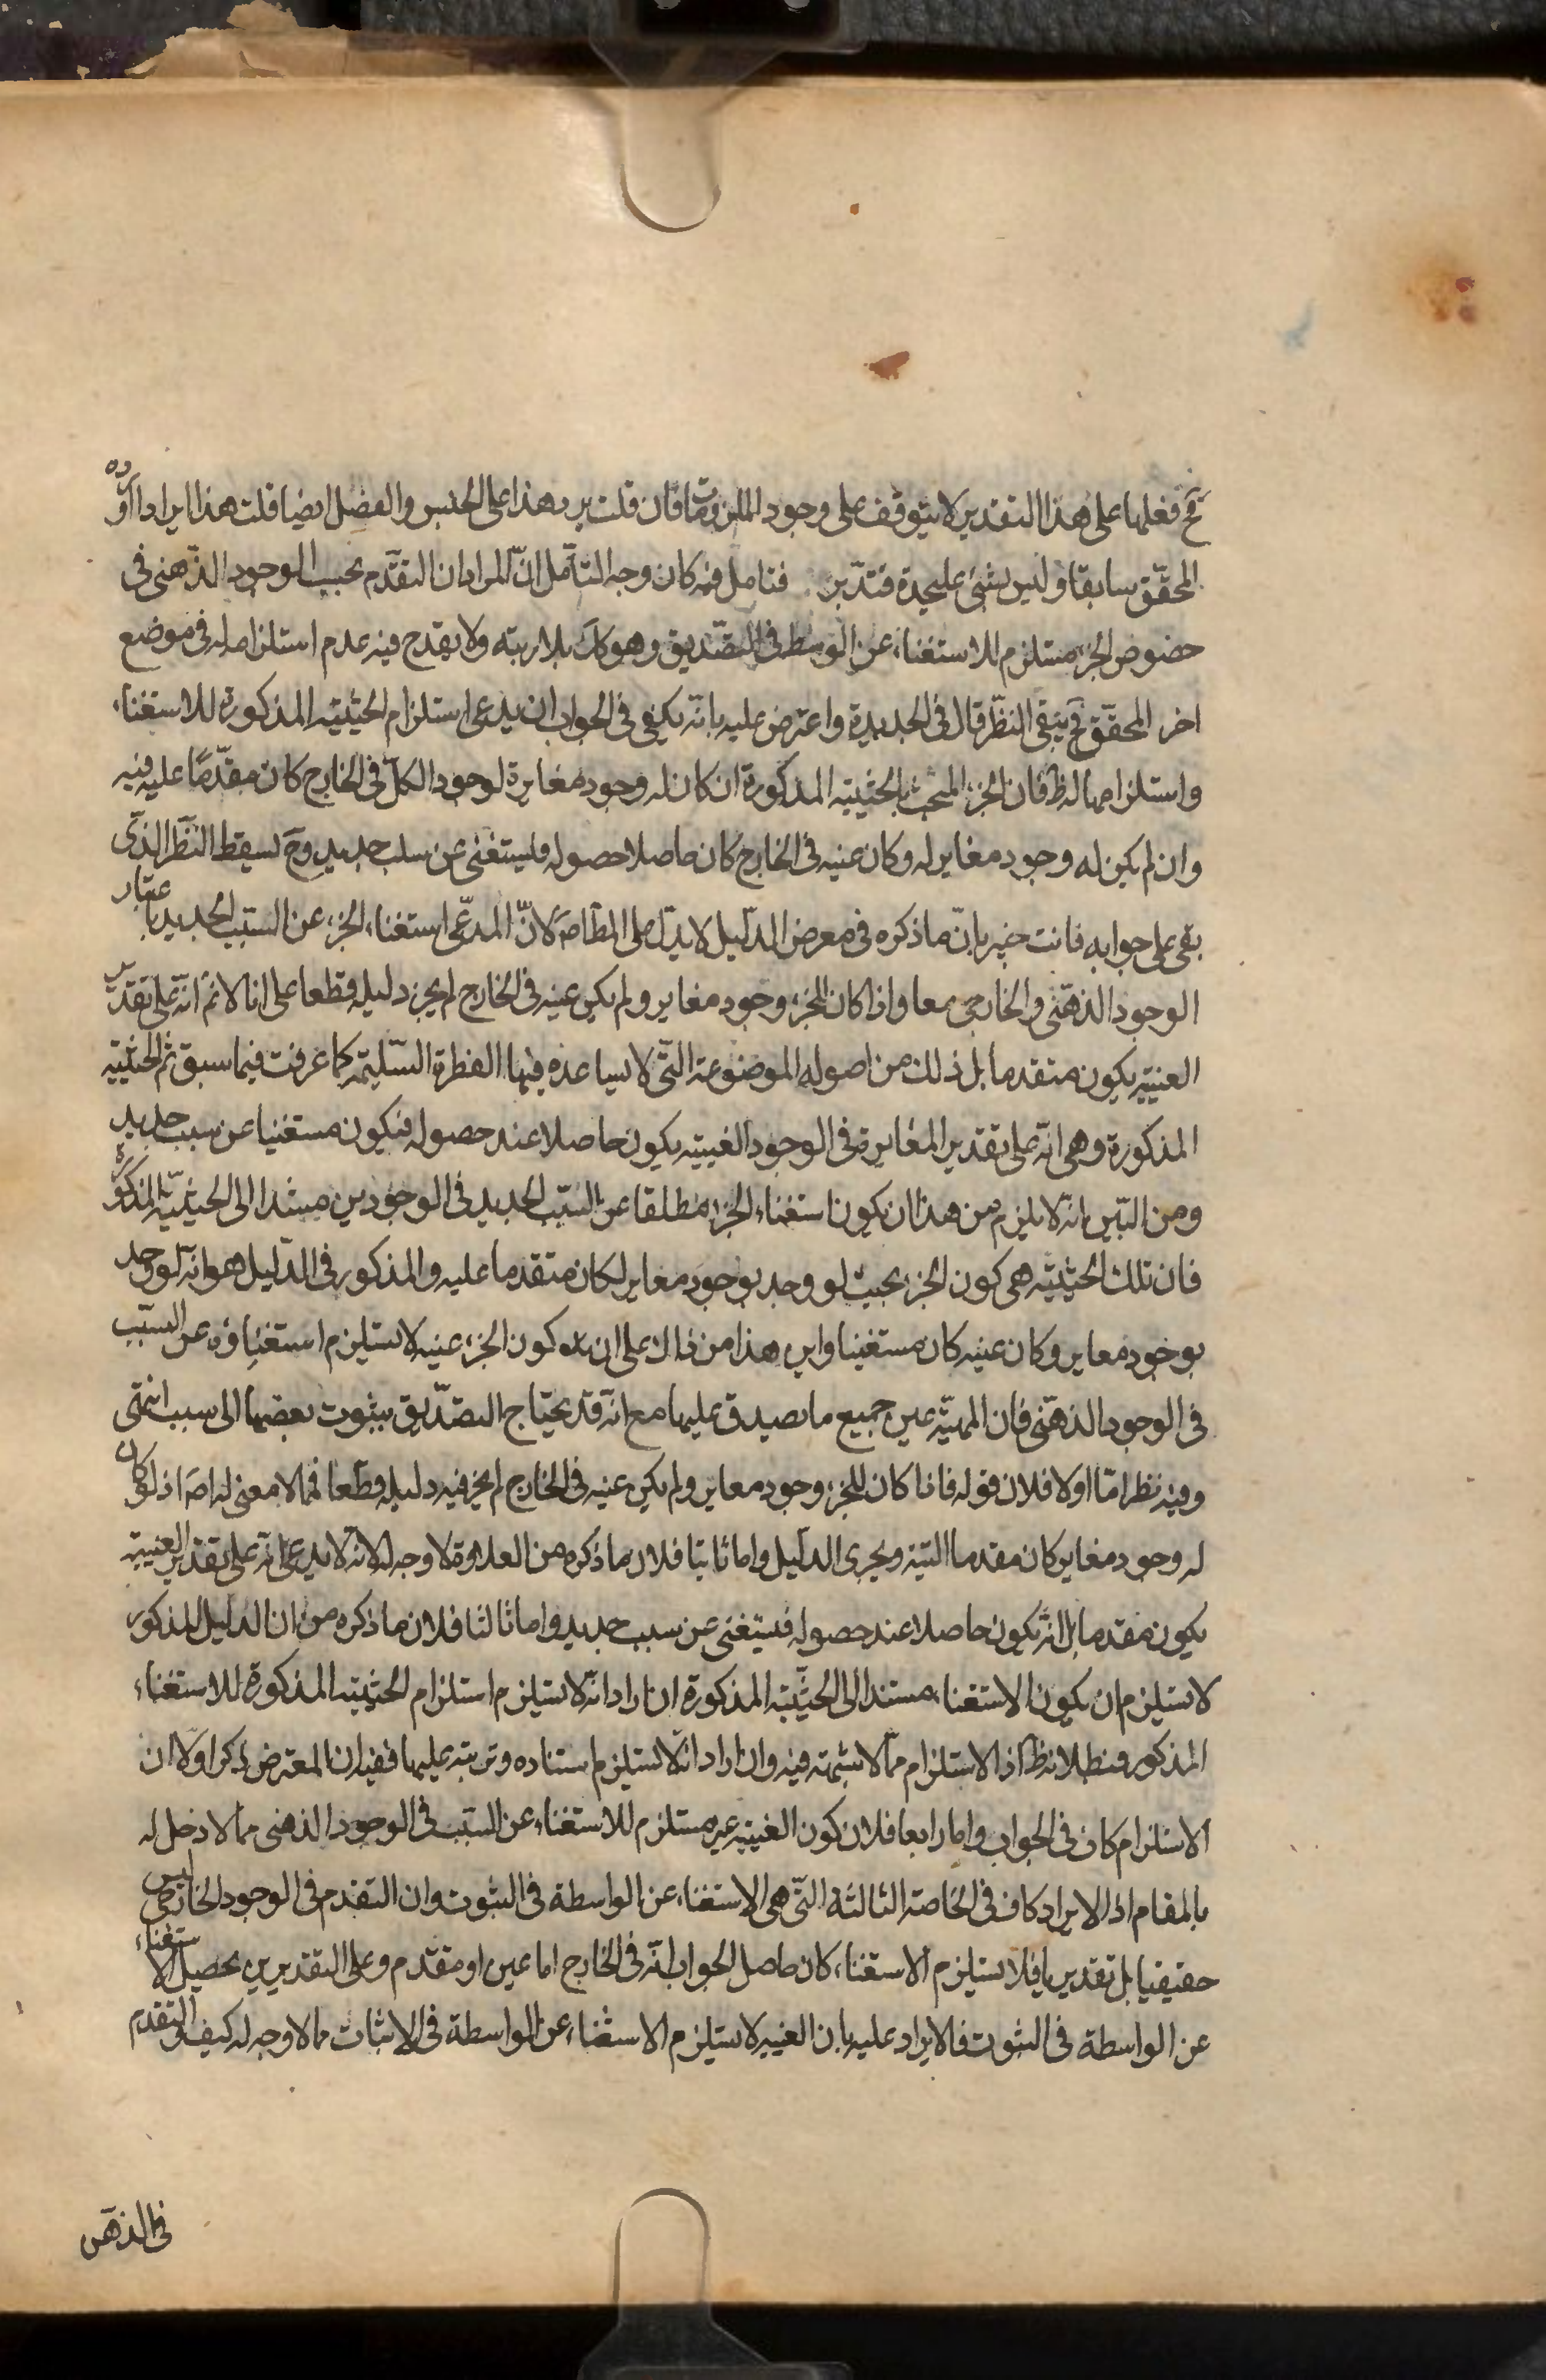 فح فعلها على هذا التقدير لا يتوقف على وجود الملزومات فان قلت يرد هذا على الجنس والفصل ايضا قلت هذا ايراد اورده
المحقّق سابقا وليس بشئ على حدة فتدبّر فتامل فيه كان وجه التأمل انّ المراد ان التقدّم بحسب الوجود الذّهنى فى
خصوص الجزء مستلزم للاستغناء عن الوسط فى التصّديق وهو كك بلا ريبة ولا يقدح فيه عدم استلزامه له فى موضع
اخر المحقّق فح يبقى النظّر قال فى الجديدة واعترض عليه بانّه يكفى فى الجواب ان يدعى استلزام الحيثيته المذكورة للاستغناء
واستلزامها له ظ فان الجزء المتحيث بالحيثيته المذكورة ان كان له وجود مغايرة لوجود الكلّ فى الخارج كان مقدّمًا عليه فيه
وان لم يكن له وجود مغاير له وكان عينه فى الخارج كان حاصلا حصوله فليستغنى عن سبب جديد وح لسقط النّظر الذّى
بقى على جوابه فانت خبير بانّ ما ذكره فى معرض الدّليل لا يدّل على المط اصَ لانّ المدعّى استغناء الجزء عن السّبب الجديد باعتبار
الوجود الذهّنى والخارجى معا واذا كان للجزء وجود مغاير ولم يكن عينه فى الخارج لم يجز دليله قطعا على انا لا نم انّه على تقدير
العينيه يكون متقدما بل ذلك من اصوله الموضوعة التّى لا يساعده فيها الفطرة السّليمة كما عرفت فيما سبق ثم الحيثيته
المذكورة وهى انّه على تقدير المغايرة فى الوجود العينيه يكون حاصلا عند حصوله فيكون مستغنيا عن سبب جديد
ومن البّين انه لا يلزم من هذا ان يكون استغناء الجزء مطلقا عن السّبب الجديد فى الوجودين مستندا الى الحيثيّة المذكورة
فان تلك الحيثيته هى كون الجزء بحيث لو وجد بوجود مغاير لكان متقدما عليه والمذكور فى الدّليل هو انّه لو وجد
بوجود مغاير وكان عينه كان مستغنيا واين هذا من ذاك على ان كون الجزء عينه لا يستلزم استغناؤه عن السّبب
فى الوجود الذهّنى فان المهيّة عين جميع ما يصدق عليها مع انّه قد يحتاج التصّديق بثبوت بعضها الى سبب انتهى
وفيه نظر امّا اولا فلان قوله فاذا كان للجزء وجود مغاير ولم يكن عينه فى الخارج لم يجز فيه دليله قطعا فمما لا معنى له اصَ اذ لو كان
له وجود مغاير كان مقدما البتّة ويجرى الدّليل واما ثانيا فلان ما ذكره من العلاوة لا وجه له لانه لا يدعى انّه على تقدير العينية
يكون مقدما بل انّه يكون حاصلا عند حصوله فيستغنى عن سبب جديد واما ثالثا فلان ما ذكره من ان الدليل المذكور
لا يستلزم ان يكون الاستغناء مستندا الى الحيثيّة المذكورة ان اراد انّه لا يستلزم استلزام الحيثيته المذكورة للاستغناء
المذكور فبطلانه ظ اذ الاستلزام ممّا لا شبهة فيه وان اراد انّه لا يستلزم استناده وترتبه عليها ففيه ان المعترض ذكر اوّلا ان
الاستلزام كاف فى الجواب واما رابعا فلان كون العينيه غير مستلزم للاستغناء عن السّبب فى الوجود الذهنى مما لا دخل له
بالمقام اذ الايراد كاف فى الخاصة الثالثة التّى هى الاستغناء عن الواسطة فى الثبوت وان التقدم فى الوجود الخارجى ليس
حقيقيا بل تقديريا فلا يستلزم الاستغناء كان حاصل الجواب انّه فى الخارج اما عين او مقدّم وعلى التقديرين يحصل الاستغناء
عن الواسطة فى الثبوت فالايراد عليه بان العينيه لا يستلزم الاستغناء عن الواسطة فى الاثبات مما لا وجه له كيف والتقدم
فى الذهن